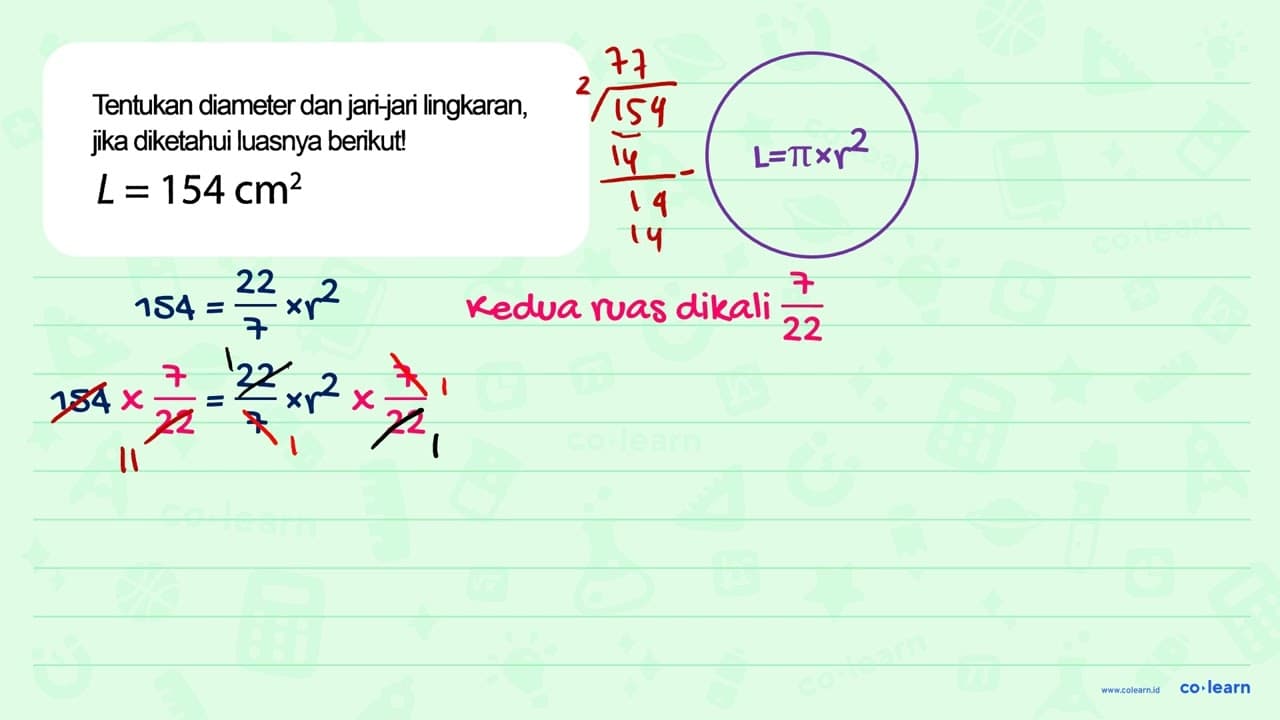 Tentukan diameter dan jari-jari lingkaran,
jika diketahui luasnya berikut!
L = 154 cm²
77
2 154
14 -
14
14
L=π×r²
154 = 22/7 ×r²
Kedua ruas dikali 7/22
154 × 7/22 = 22/7 ×r² × 7/22
1
1
11
1
1
www.colearn.id
co·learn